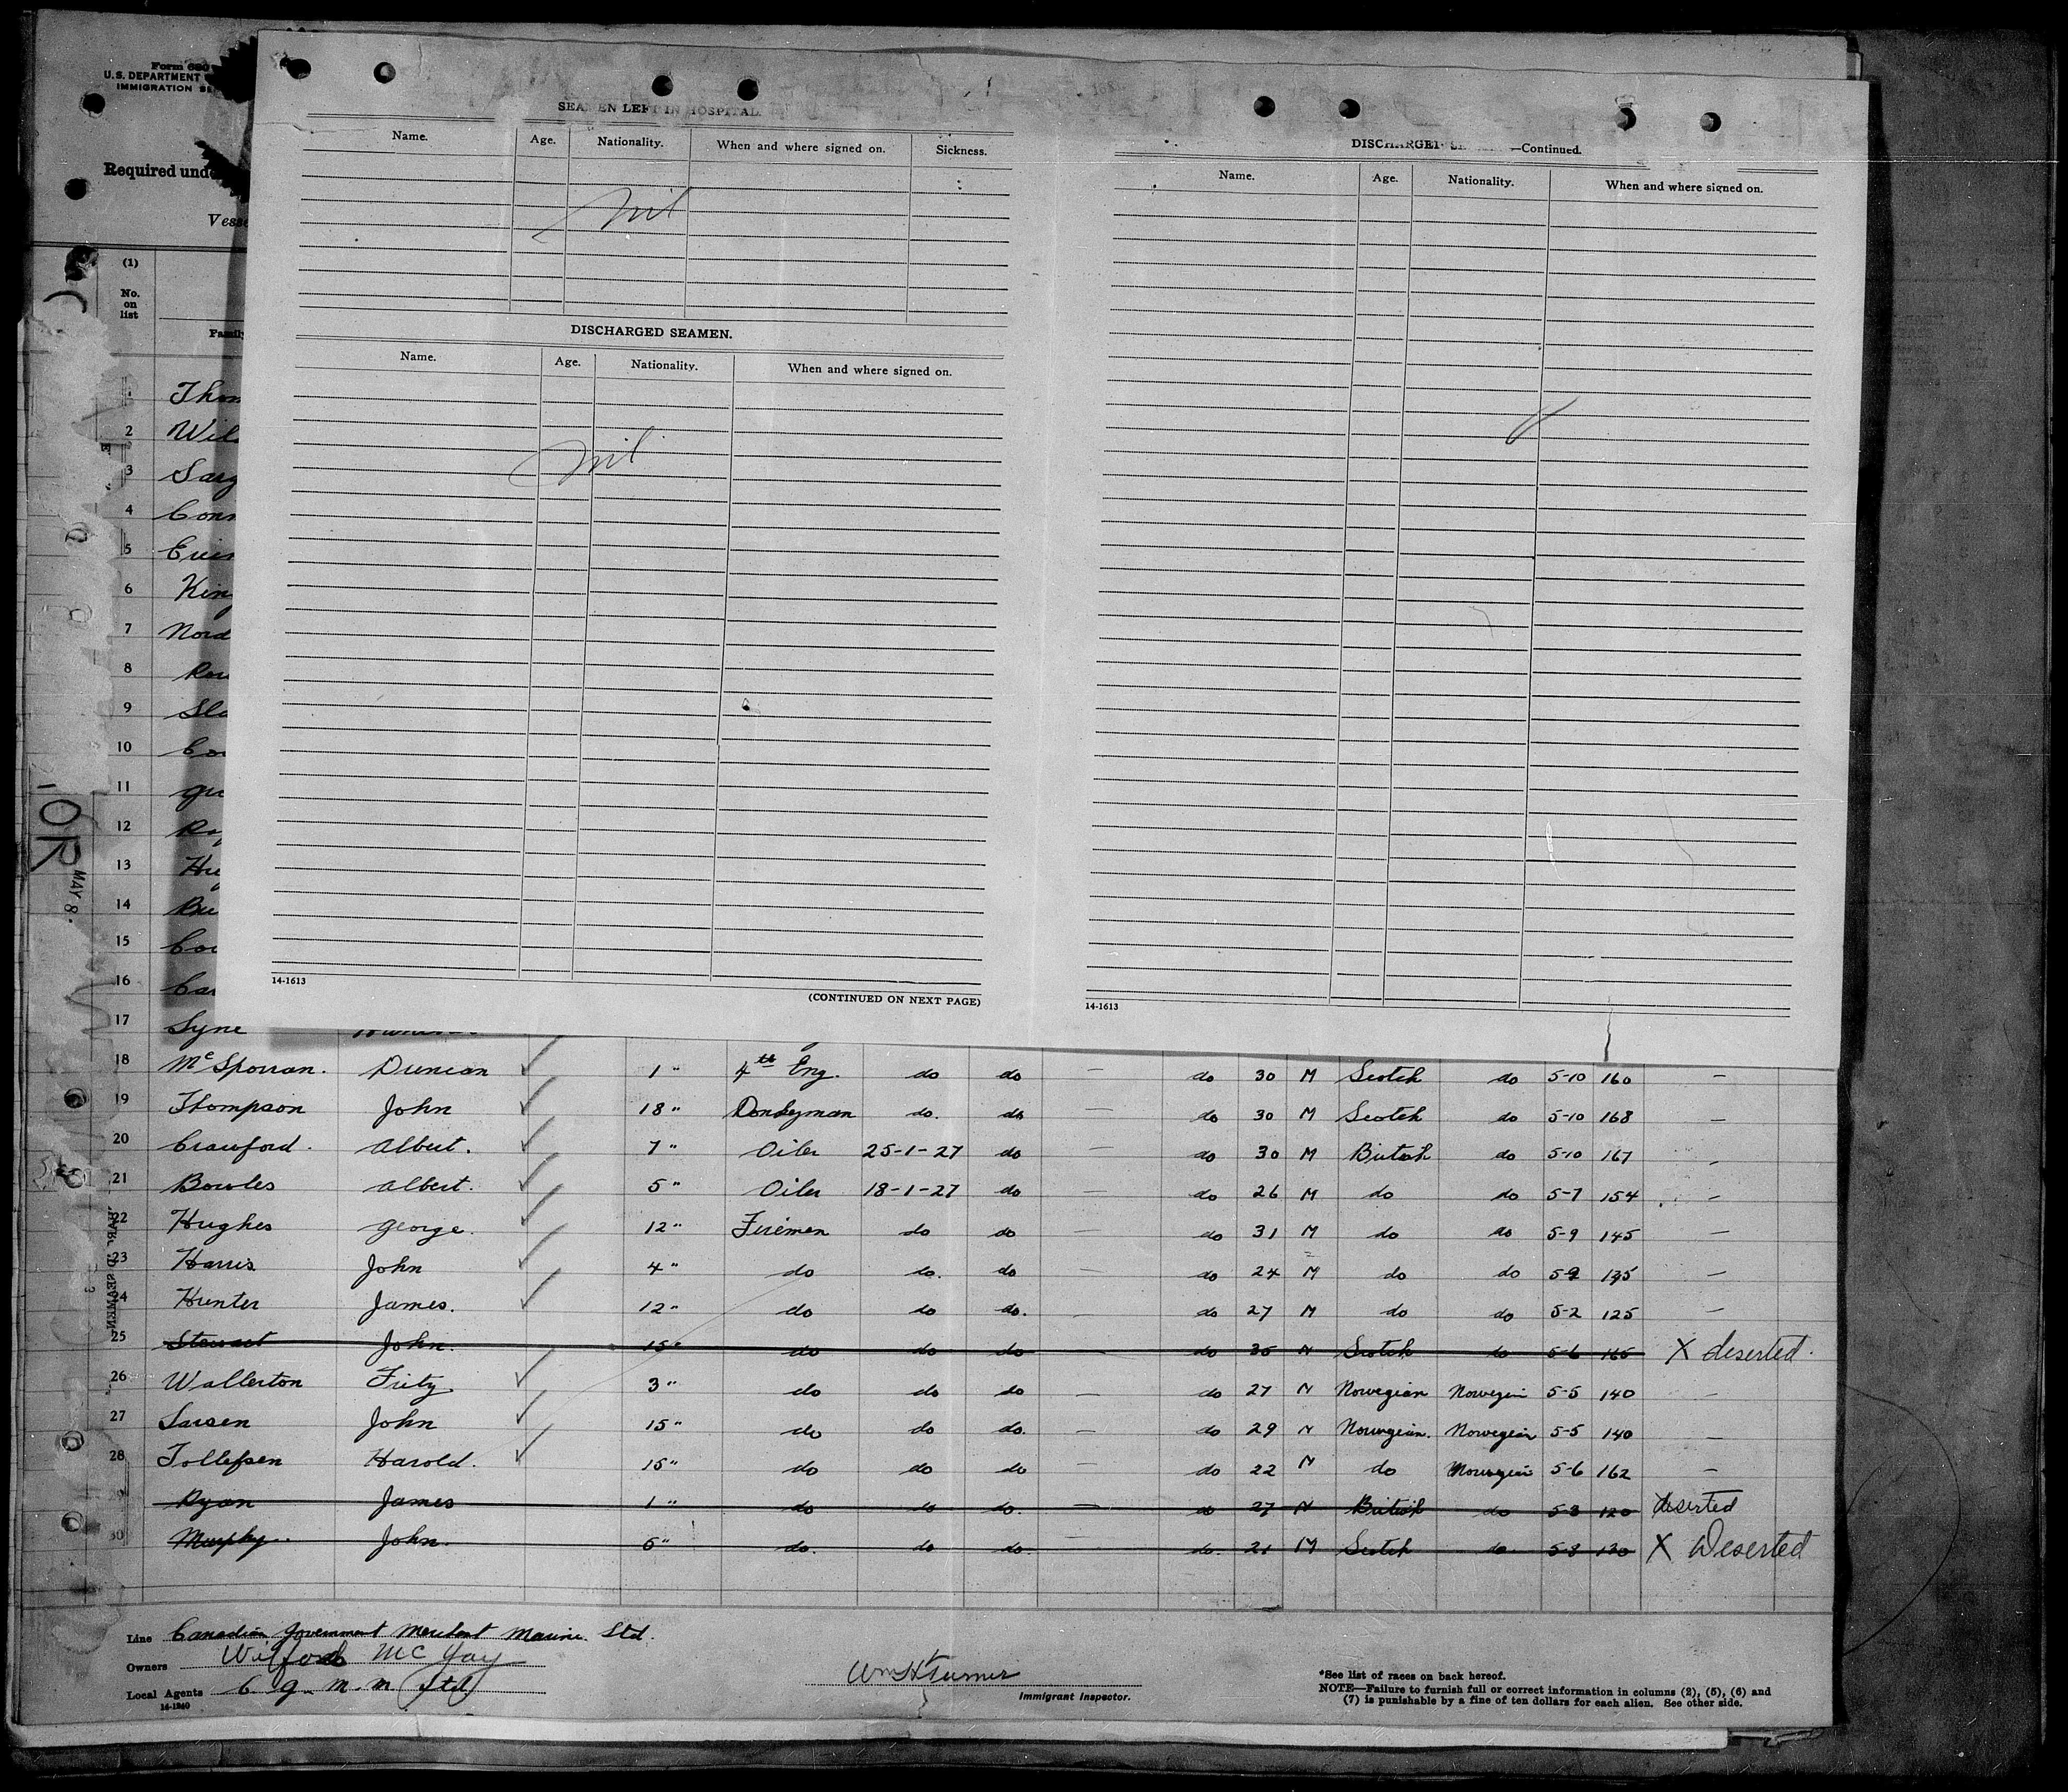 Form 680
U.S. DEPARTMENT
IMMIGRATION SE
Required unde
Vesse
(1)
No. on list
Family
SEAMEN LEFT IN HOSPITAL.
Name. Age. Nationality. When and where signed on. Sickness.
nil
DISCHARGED SEAMEN.
Name. Age. Nationality. When and where signed on.
nil
14-1613
(CONTINUED ON NEXT PAGE)
DISCHARGED SE —Continued.
Name. Age. Nationality. When and where signed on.
14-1613
OR
MAY 8.
1 Thom
2 Wil
3 Sarg
4 Conn
5
6 King
7 Nord
8
9 Sla
10 Co
11
12
13 Hu
14 Bu
15 Co
16 Car
17 Syne
18 McSporran. Duncan 1 " 4th Eng. do do — do 30 M Scotch do 5-10 160 —
19 Thompson John 18 " Donkeyman do. do — do 30 M Scotch do 5-10 168 —
20 Crawford. Albert. 7 " Oiler 25-1-27 do — do 30 M British do 5-10 167 -
21 Bowles Albert. 5 " Oiler 18-1-27 do — do 26 M do do 5-7 154 -
22 Hughes George. 12 " Firemen do do — do 31 M do do 5-9 145 —
23 Harris John 4 " do do. do — do 24 M do do 5-9 135 —
24 Hunter James. 12 " do do do. — do 27 M do do 5-2 125 —
25 Stewart John. 15 " do do do - do 35 M Scotch do 5-6 165 X deserted.
26 Wallerton Fritz 3 " do do do — do 27 M Norwegian Norwegian 5-5 140 -
27 Larsen John 15 " do do do. — do 29 M Norwegian. Norwegian 5-5 140 —
28 Tollefsen Harold. 15 " do do do — do 22 M do Norwegian 5-6 162 —
29 Ryan James 1 " do do do. — do 27 M British do 5-3 120 deserted
30 Murphy. John. 6 " do. do do. — do. 21 M Scotch do 5-8 130 X Deserted
Line Canadian Government Merchant Marine Ltd.
Owners
Local Agents C. G. M. M (Ltd)
14-1240
Wm H Turner
Immigrant Inspector.
*See list of races on back hereof.
NOTE—Failure to furnish full or correct information in columns (2), (5), (6) and
(7) is punishable by a fine of ten dollars for each alien. See other side.